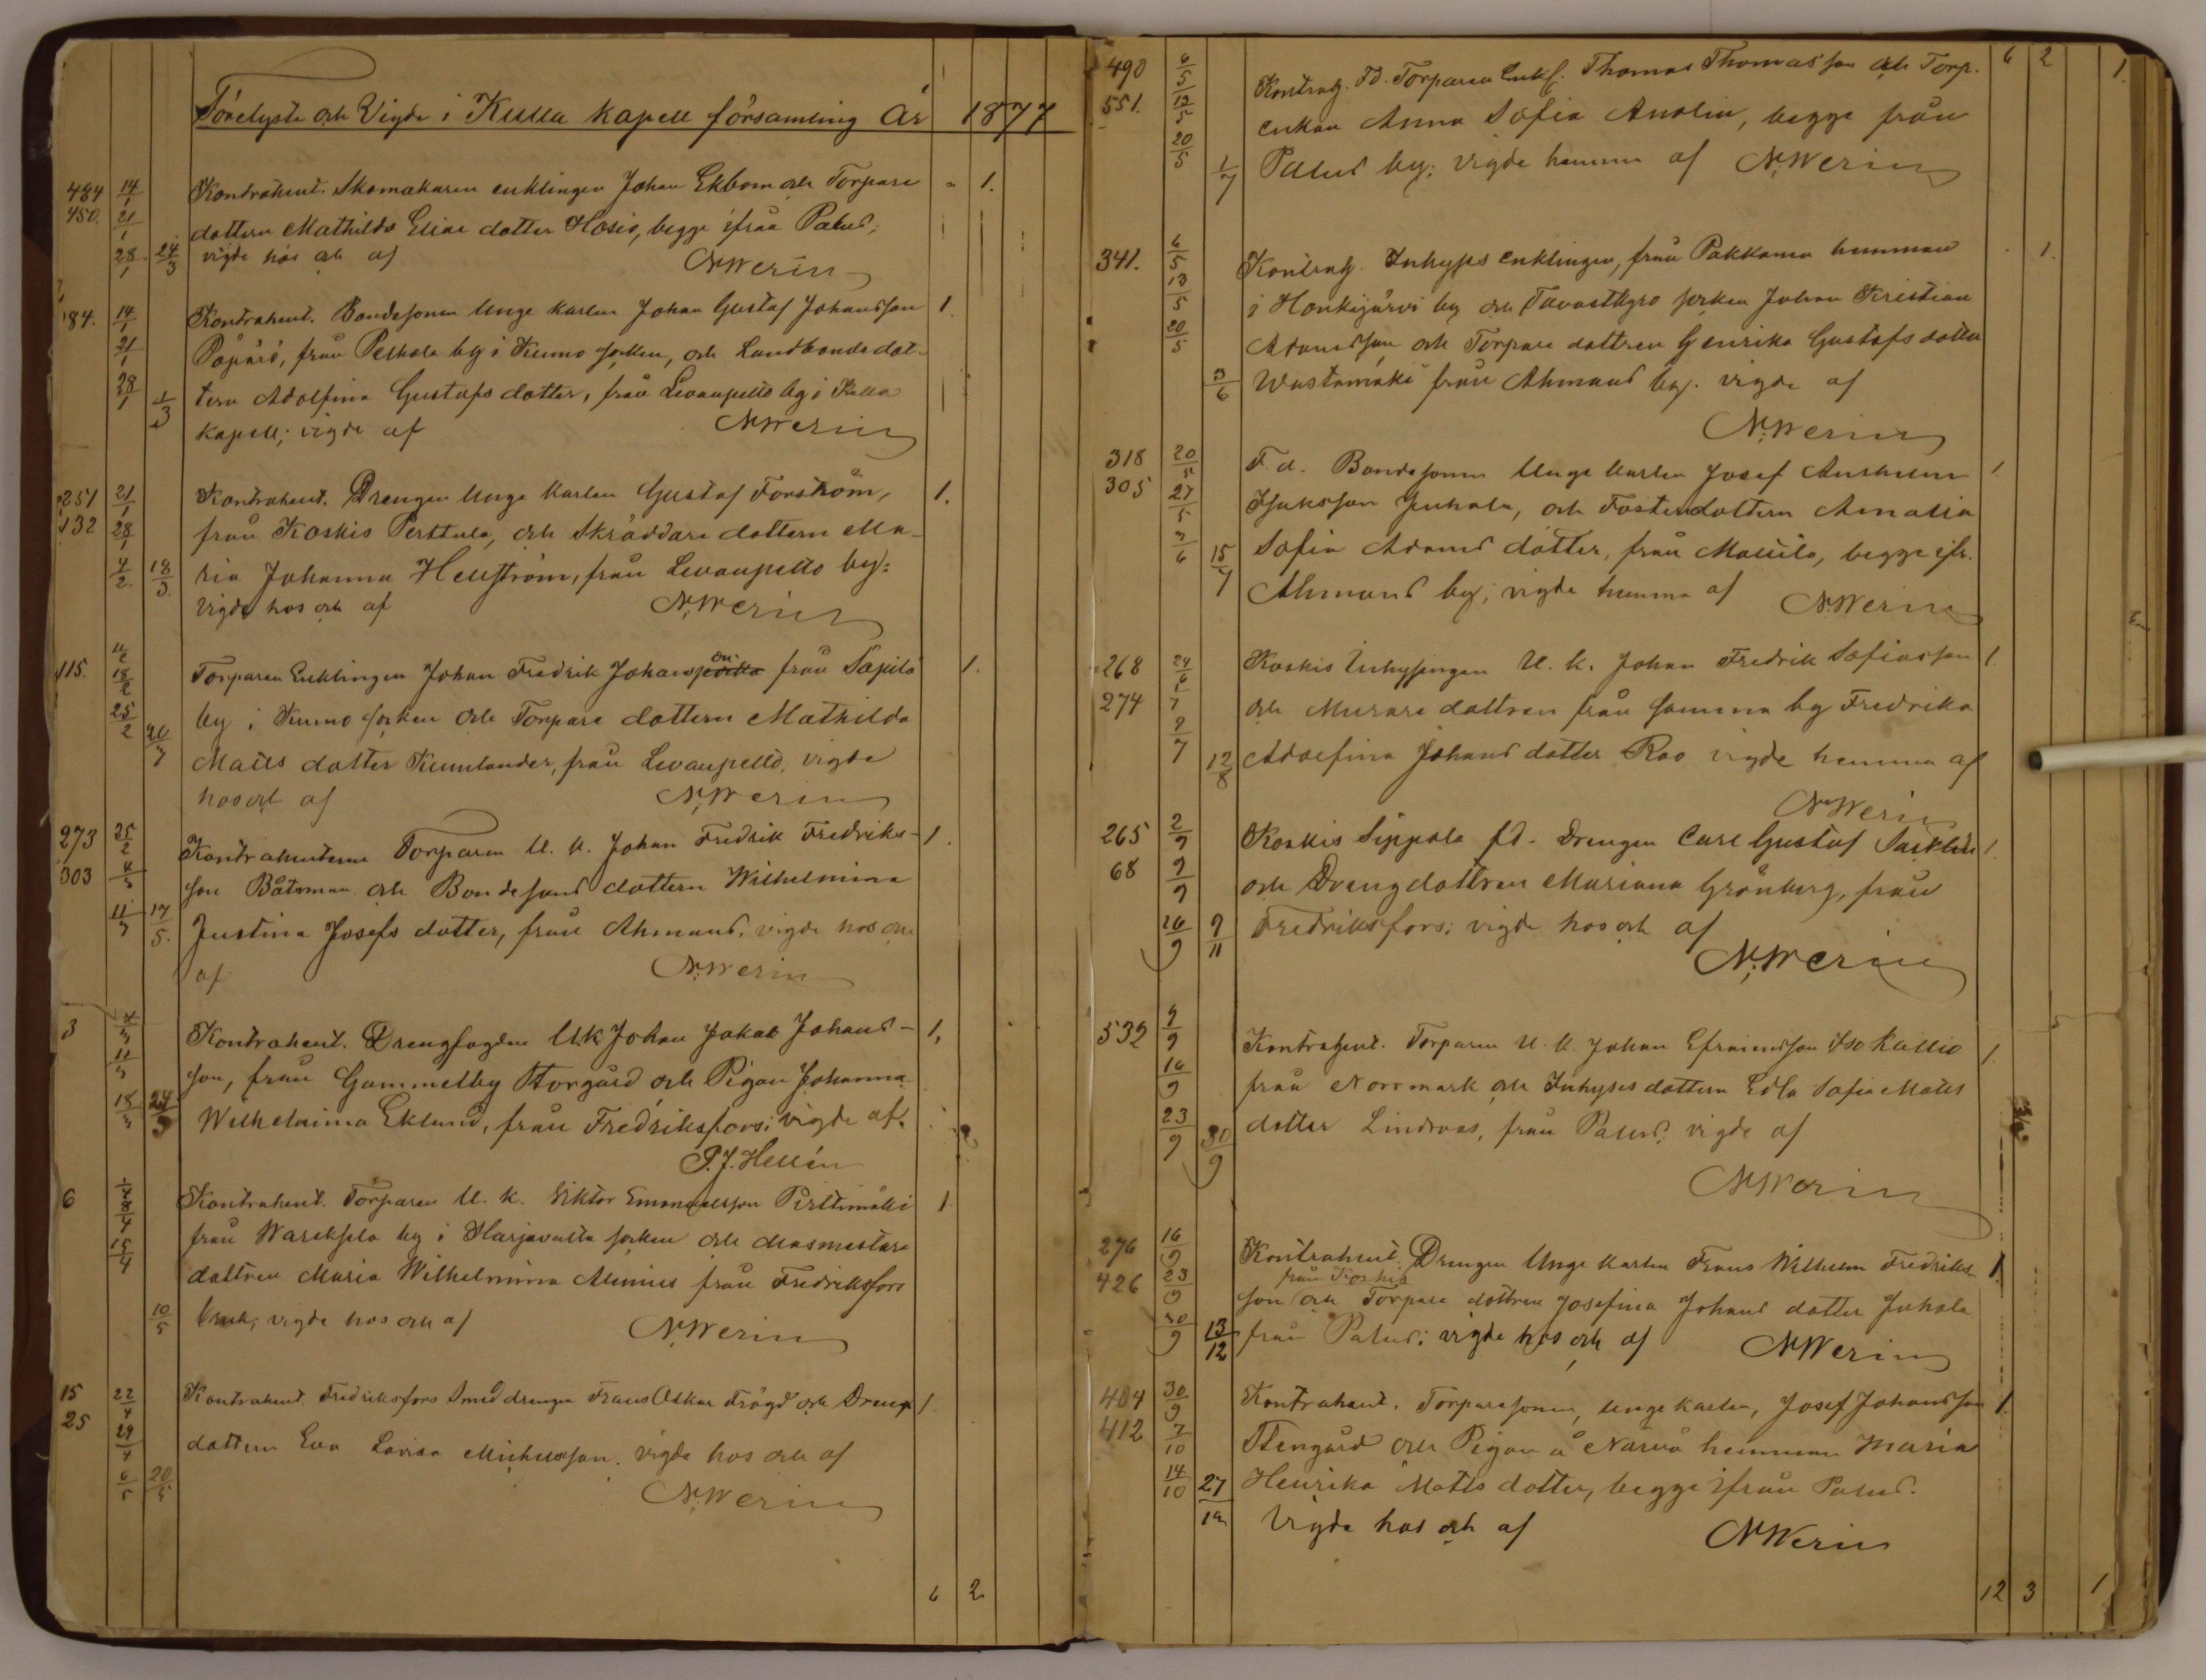 Förelyste och Vigde i Kulla kapell församling År 1877
484 14/1 Kontrahent. Skomakaren enklingen Johan Ekbom och Torpare - 1.
450. 21/1 dottern Mathilda Elias dotter Hosio, begge ifrån Palus;
28/1 24/3 vigde hos och af N. Werin
184. 14/1 Kontrahent. Bondesonen Unge karlen Johan Gustaf Johansson 1.
21/1 Pajari, från Peihola by i Kumo socken, och Landbonde dot-
28/1 1/3 tern Adolfina Gustafs dotter, från Levanpelto by i Kulla
kapell; vigde af N. Werin
251 21/1 Kontrahent. Drengen Unge karlen Gustaf Forström, 1.
132 28/1 från Koskis Perttula, och Skräddare dottern Ma-
4/2 18/3 ria Johanna Hellström, från Levanpelto by:
Vigde hos och af N. Werin
115. 11/2 18/2 Torparen Enklingen Johan Fredrik Johansson från Sapila 1.
25/2 by i Kumo socken och Torpare dottern Mathilda
Matts dotter Kumlander, från Levanpelto. vigde
hos och af N. Werin
273 25/2 Kontrahenterne Torparen U. k. Johan Fredrik Fredriks- 1.
303 4/3 son Båtsman och Bondesons dottern Wilhelmina
11/3 17/5. Justina Josefs dotter, från Ahmaus. vigde hos och
af N. Werin
3 4/3 Kontrahent. Drengfogden U.k Johan Jakob Johans- 1.
11/3 son, från Gammelby Storgård och Pigan Johanna
18/3 24/3 Wilhelmina Eklund, från Fredriksfors; vigde af.
P. J. Hellén
6 8/4 Kontrahent. Torparen U. k. Viktor Emanuelsson Pirttimäki 1
15/4 från Wareksela by i Harjavalta socken och Masmestare
dottren Maria Wilhelmina Alenius från Fredriksfors
10/5 bruk; vigde hos och af N. Werin
15 22/4 Kontrahent. Fredriksfors Smeddrengen Frans Oskar Frögd och Dreng 1.
25 29/4 dottern Eva Lovisa Michelsson. vigde hos och af
6/5 20/5 N. Werin
6 2
490 6/5 Kontrah. Fd. Torparen Enkl. Thomas Thomasson och Torp. 6 2 1.
551. 13/5 enkan Anna Sofia Analin, begge från
20/5 1/7 Palus by; vigde hemma af N. Werin
341. 6/5 Kontrah. Inhyses enklingen, från Pakkanen hemman 1.
13/5 i Honkijärvi by och Tavastkyro socken Johan Kristian
20/5 Adamsson och Torpare dottren Henrika Gustafs dotter
3/6 Wastamäki från Ahmaus by. vigde af
N. Werin
318 20/5 F. d. Bondesonen Unge karlen Josef Anshelm 1
305 27/5 Isaksson Juhola, och Fosterdottern Amalia
3/6 15/7 Sofia Adams dotter, från Mattila, begge ifr.
Ahmaus by; vigde hemma af N. Werin
268 24/6 Koskis Inhysingen U. k. Johan Fredrik Sofiasson 1.
274 1/7 och Murare dottren från samma by Fredrika
12/8 Adolfina Johans dotter Roo vigde hemma af
N. Werin
265 2/9 Koskis Sippola fd. Drengen Carl Gustaf Sacklin 1.
68 9/9 och Drengdottren Mariana Grönberg, från
16/9 9/11 Fredriksfors; vigde hos och af
N. Werin
532 9/9 Kontrahent. Torparen U. k. Johan Efraimsson Iso Kallio 1.
16/9 från Norrmark och Inhyses dottern Edla Sofia Matts
23/9 30/9 dotter Lindroos, från Palus. vigde af
N. Werin
276 16/9 Kontrahent. Drengen Unge karlen Frans Wilhelm Fredriks- 1.
från Koskis
426 23/9 son och Torpare dottren Josefina Johans dotter Juhola
30/9 13/12 från Palus; vigde hos och af N. Werin
404 30/9 Kontrahent. Torparesonen, unge karlen, Josef Johansson 1.
412 7/10 Stengård och Pigan å Närvä hemman Maria
14/10 27/12 Henrika Matts dotter, begge ifrån Palus.
Vigde hos och af N. Werin
12 3 1